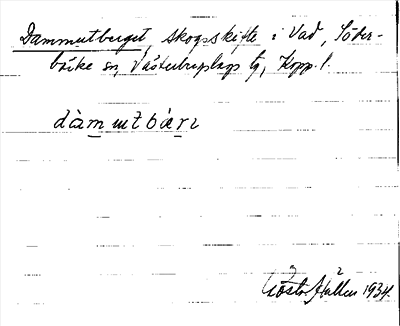 Dammutberget, skogsskifte i Vad, Söder-
bärke sn, Västerbergslags tg, Kopp. l.
dàmutbær̀ı
Gösta Hallen 1934.